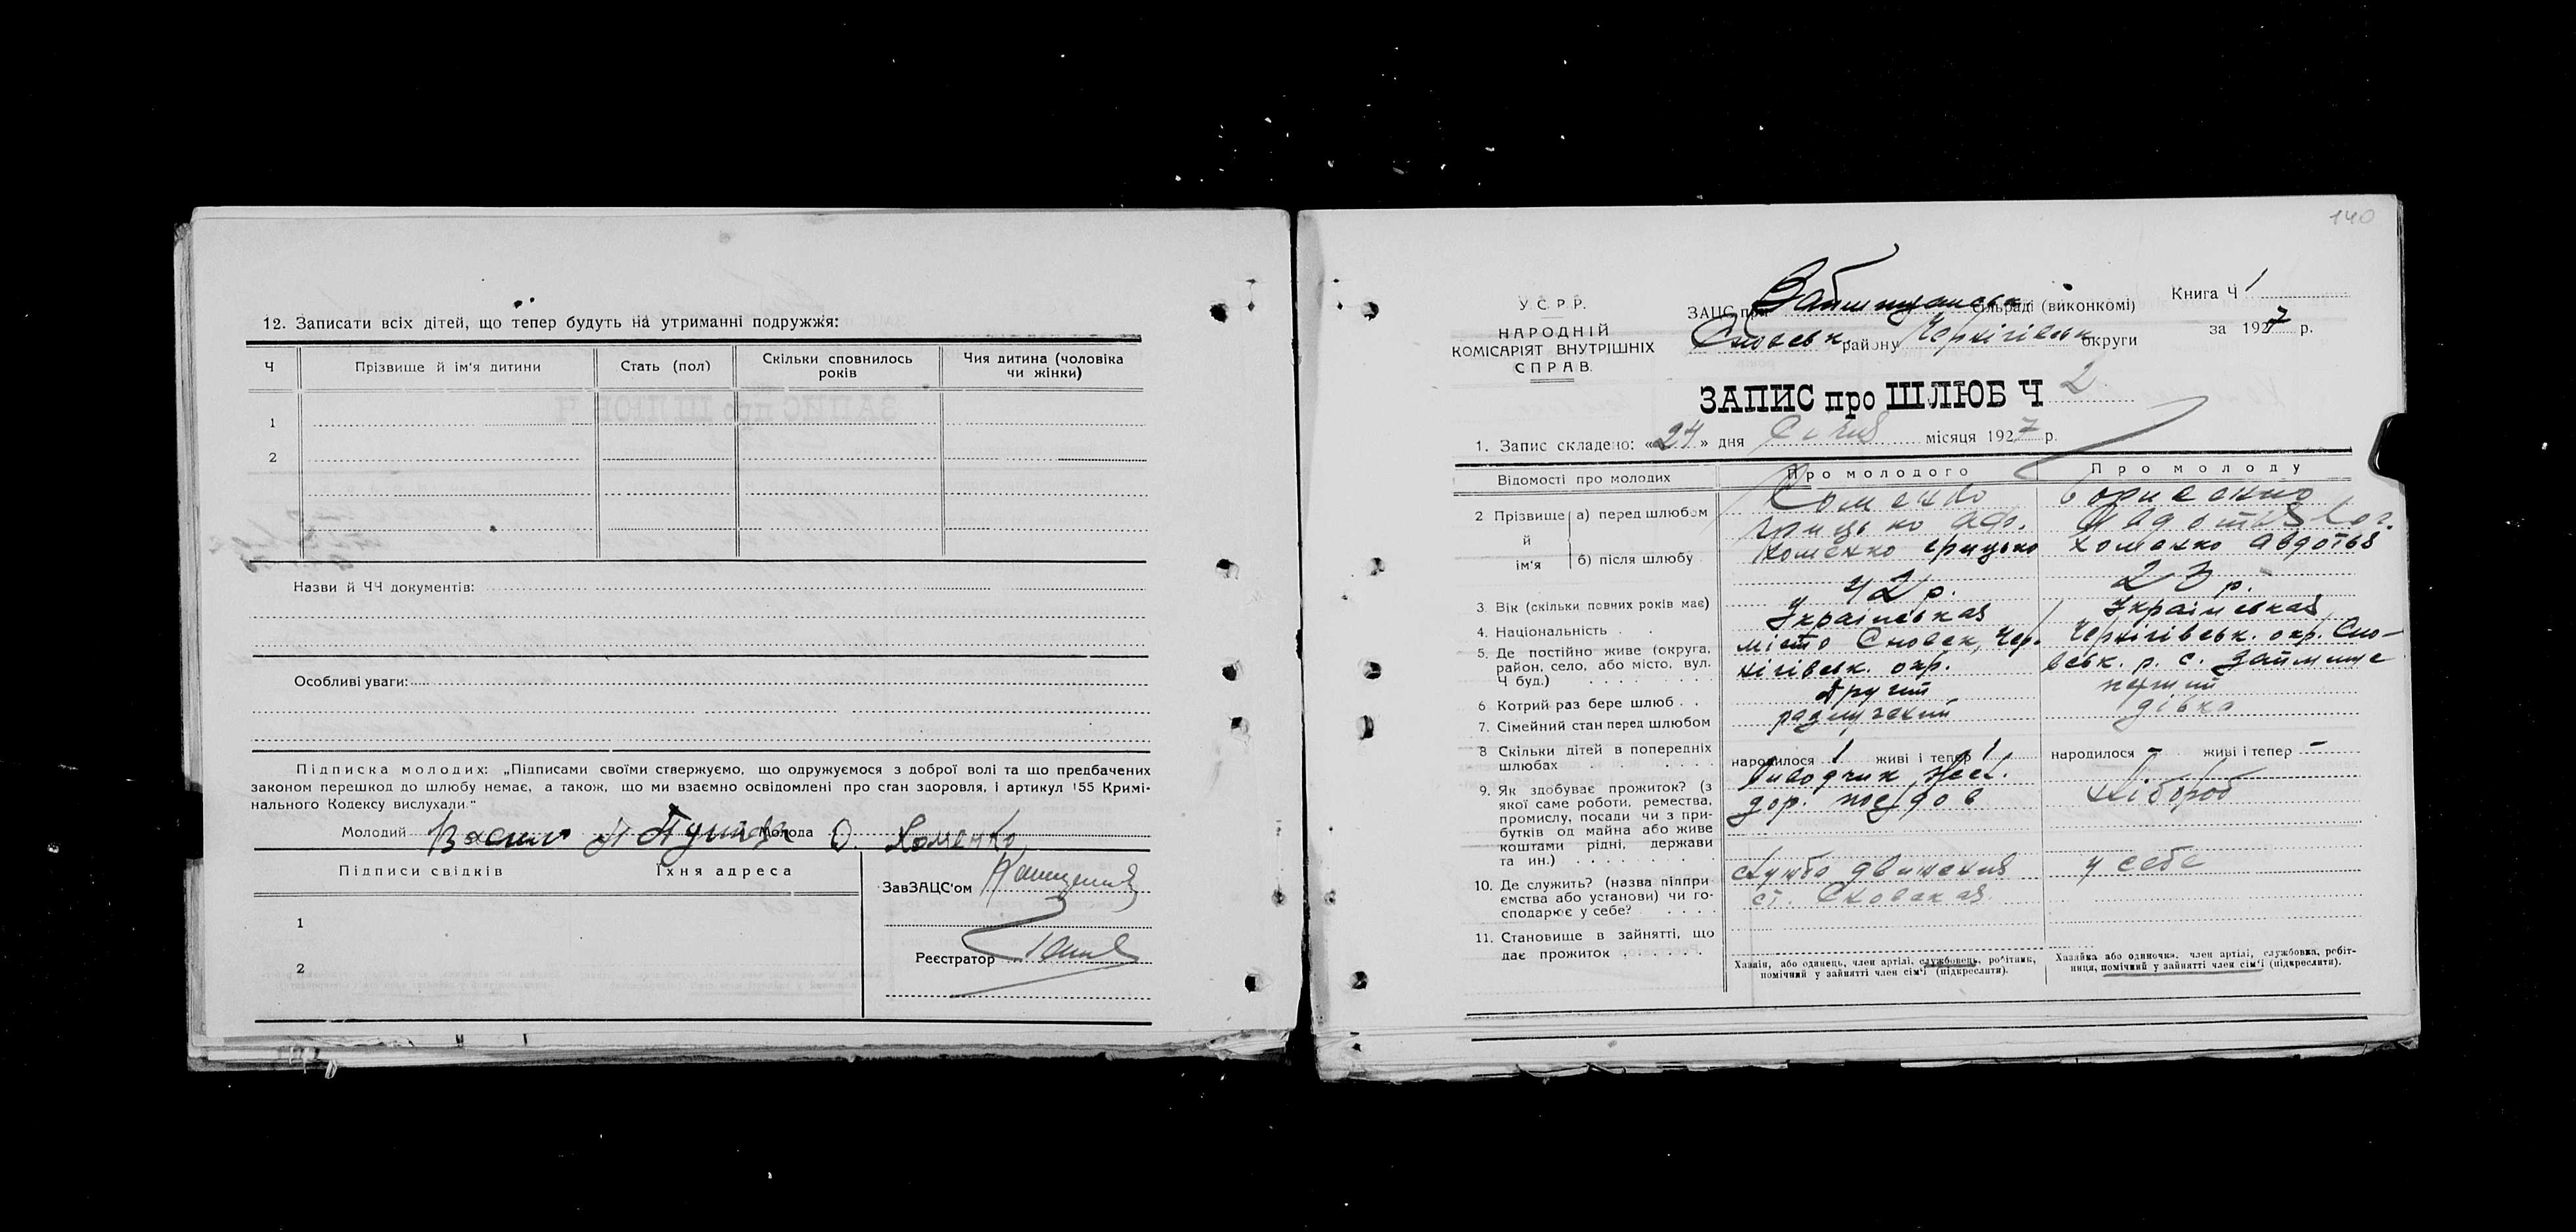 12. Записати всіх дітей, що тепер будуть на утриманні подружжя:
Ч Прізвище й ім'я дитини Стать (пол) Скільки сповнилось років Чия дитина (чоловіка чи жінки)
1
2
Назви й ЧЧ документів:
Особливі уваги:
Підписка молодих: „Підписами своїми стверджуємо, що одружуємося з доброї волі та що предбачених
законом перешкод до шлюбу немає, а також, що ми взаємно освідомлені про стан здоровля, і артикул 155 Кримі-
нального Кодексу вислухали."
Молодий Молода О. Хоменко
Підписи свідків Їхня адреса
ЗавЗАЦС'ом
1
Реєстратор
2
140
У.С.Р.Р.
НАРОДНІЙ
КОМІСАРІЯТ ВНУТРІШНІХ
СПРАВ.
ЗАЦС при сільраді (виконкомі)
Сновськ району Чернігівськ округи
Книга Ч 1
за 1927 р.
ЗАПИС про ШЛЮБ Ч 2
1. Запис складено: «24» дня Січня місяця 1927 р.
Відомості про молодих Про молодого Про молоду
2 Прізвище й ім'я а) перед шлюбом Хоменко Борисенко
Грицько Аф. Авдотья
б) після шлюбу Хоменко Грицько Хоменко Авдотья
3. Вік (скільки повних років має) 42 р. 23 р.
4. Національність Українськая Українськая
5. Де постійно живе (округа, район, село, або місто, вул. Ч буд.) місто Сновск, Чер-
нігівськ. окр. Чернігівськ. окр. Сно-
вськ. р. с. Займище
6 Котрий раз бере шлюб другий перший
7. Сімейний стан перед шлюбом дівка
8 Скільки дітей в попередніх шлюбах народилося 1 живі і тепер 1 народилося - живі і тепер -
9. Як здобуває прожиток? (з якої саме роботи, ремества, промислу, посади чи з прибутків од майна або живе коштами рідні, держави та ин.) дор. поєздов Хлібороб
10. Де служить? (назва підприємства або установи) чи господарює у себе? служба движения
ст. Сновская у себе
11. Становище в зайнятті, що дає прожиток
Хазяїн, або одинець, член артілі, службовець, робітник,
помічний у зайнятті член сім'ї (підкреслити).
Хазяйка або одиночка, член артілі, службовка, робіт-
ниця, помічний у зайнятті член сім'ї (підкреслити).